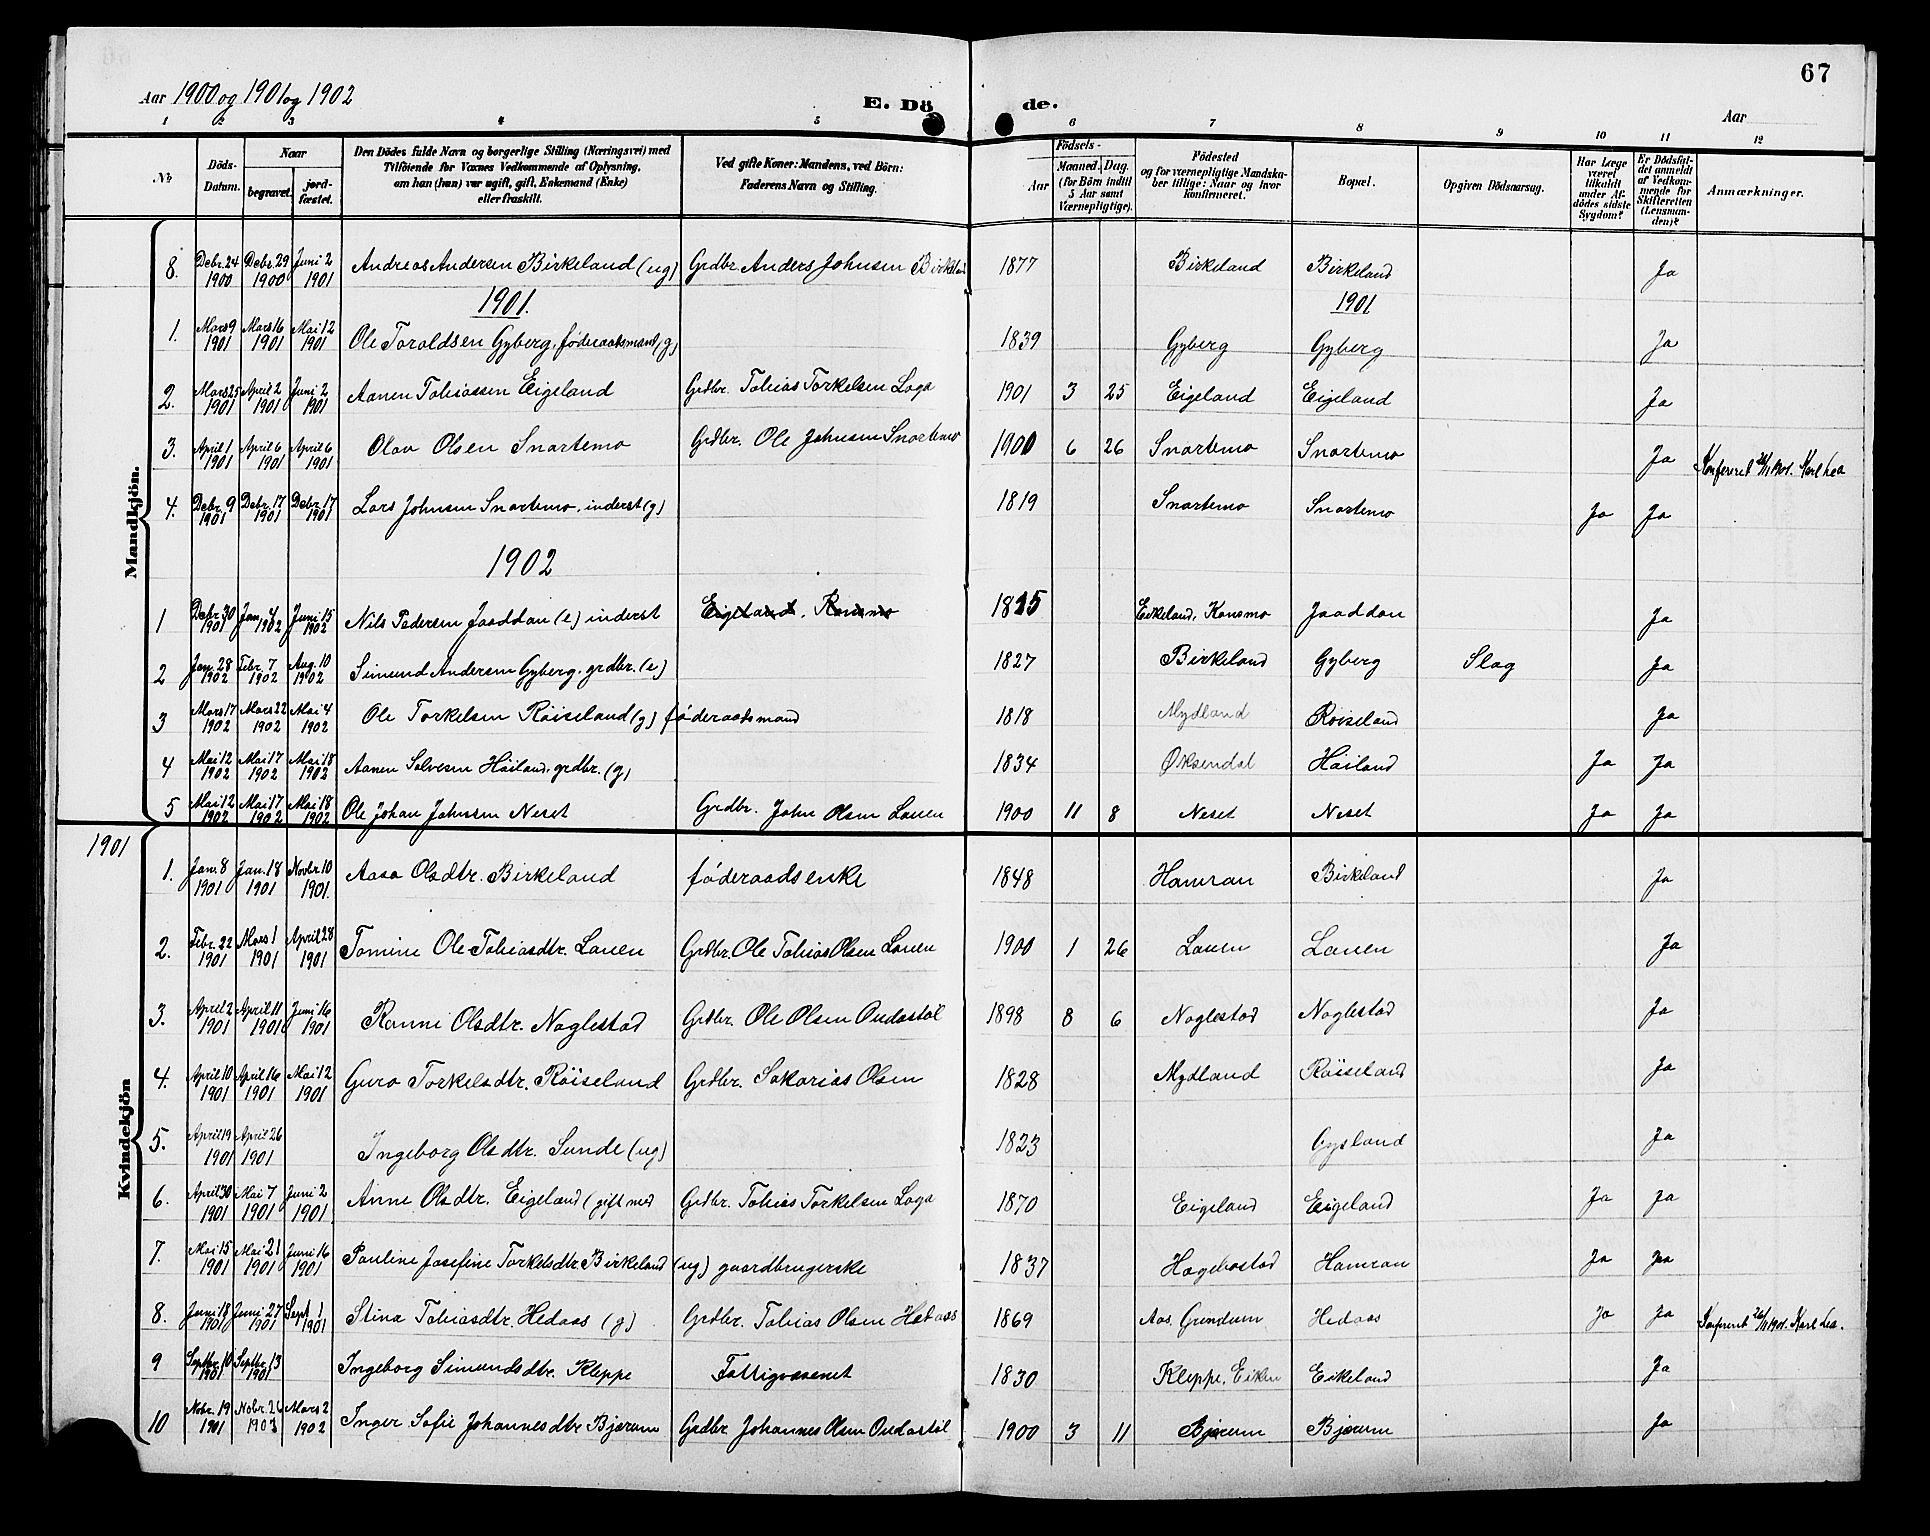 67
Aar 1900 og 1901 og 1902
E. Dö de.
Aar
1 2 3 4 5 6 7 8 9 10 11 12
No
Döds-Datum.
Naar
begravet.
jordfæstet.
Den Dödes fulde Navn og borgerlige Stilling (Næringsvei) med Tilföiende for Voxnes Vedkommende af Oplysning, om han (hun) var ugift, gift, Enkemand (Enke) eller fraskilt.
Ved gifte Koner: Mandens, ved Börn: Faderens Navn og Stilling.
Födsels-
Aar
Maaned. Dag. (for Börn indtil 5 Aar samt Værnepligtige).
Födested og for værnepligtige Mandskaber tillige: Naar og hvor konfirmeret.
Bopæl.
Opgiven Dödsaarsag.
Har Læge været tilkaldt under Afdödes sidste Sygdom?
Er Dödsfaldet anmeldt af Vedkommende for Skifteretten (Lensmanden)?
Anmærkninger.
Mandkjön.
8. Debr. 24 1900 Debr. 29 1900 Juni 2 1901 Andreas Andersen Birkeland (ug) Grdbr. Anders Johnsen Birkeland 1877 Birkeland Birkeland Ja
1901. 1901
1. Mars 9 1901 Mars 16 1901 Mai 12 1901 Ole Toroldsen Gyberg, føderaadsmand (g) 1839 Gyberg Gyberg Ja
2. Mars 25 1901 April 2 1901 Juni 2 1901 Aanen Tobiassen Eigeland Grdbr. Tobias Torkelsen Loga 1901 3 25 Eigeland Eigeland Ja
3. April 1 1901 April 6 1901 April 6 1901 Olav Olsen Snartemo Grdbr. Ole Johnsen Snartemo 1900 6 26 Snartemo Snartemo Ja Konfereret 1901. Karl Lea
4. Debr. 9 1901 Debr. 17 1901 Debr. 17 1901 Lars Johnsen Snartemo, inderst (g) 1819 Snartemo Snartemo Ja Ja
1902
1 Debr. 30 1901 Jan. 4 1902 Juni 15 1902 Nils Pedersen Jaaddan (e) inderst Eigeland, Konsmo 1815 Eikeland, Konsmo Jaaddan Ja
2 Jan. 28 1902 Febr. 7 1902 Aug. 10 1902 Simund Andersen Gyberg, grdbr. (e) 1827 Birkeland Gyberg Slag Ja
3 Mars 17 1902 Mars 22 1902 Mai 4 1902 Ole Torkelsen Röiseland (g) føderaadsmand 1818 Mydland Röiseland Ja
4 Mai 12 1902 Mai 17 1902 Mai 18 1902 Aanen Salvesen Höiland, grdbr. (g) 1834 Øksendal Höiland Ja Ja
5 Mai 12 1902 Mai 17 1902 Mai 18 1902 Ole Johan Johnsen Neset Grdbr. John Olsen Lauen 1900 11 8 Neset Neset Ja Ja
1901
Kvindekjön
1. Jan. 8 1901 Jan. 18 1901 Novbr. 10 1901. Aasa Olsdtr. Birkeland føderaadsenke 1848 Hamran Birkeland Ja
2. Febr. 22 1901 Mars 1 1901 April 28 1901 Tomine Ole Tobiasdtr. Lauen Grdbr. Ole Tobias Olsen Lauen 1900 1 26 Lauen Lauen Ja
3. April 2 1901 April 11 1901 Juni 16 1901 Ranni Olsdtr. Naglestad Grdbr. Ole Olsen Oudastöl 1898 8 6 Naglestad Naglestad Ja
4. April 10 1901 April 16 1901 Mai 12 1901 Guro Torkelsdtr. Röiseland Grdbr. Sakarias Olsen 1828 Mydland Röiseland Ja
5. April 19 1901 April 26 1901 Ingeborg Olsdtr. Sunde (ug) 1823 Gysland Ja
6. April 30 1901 Mai 7 1901 Juni 2 1901 Anne Olsdtr. Eigeland (gift med Grdbr. Tobias Torkelsen Loga 1870 Eigeland Eigeland Ja Ja
7. Mai 15 1901 Mai 21 1901 Juni 16 1901 Pauline Josefine Torkelsdtr Birkeland (ug) gaardbrugerske 1837 Hægebostad Hamran Ja Ja
8. Juni 18 1901 Juni 27 1901 Sept. 1 1901 Stina Tobiasdtr. Hedaas (g) Grdbr. Tobias Olsen Hedaas 1869 Aas, Grindum Hedaas Ja Ja Konfereret 1901. Karl Lea.
9 Septbr. 10 1901 Septbr. 13 1901 Ingeborg Simundsdtr. Kleppe Fattigvæsenet 1830 Kleppe, Eiken Eikeland Ja
10 Nobr. 19 1901 Nobr. 26 1903 Mars 2 1902 Inger Sofie Johannesdtr Bjærum Grdbr Johannes Olsen Oudastöl 1900 3 11 Bjærum Bjærum Ja